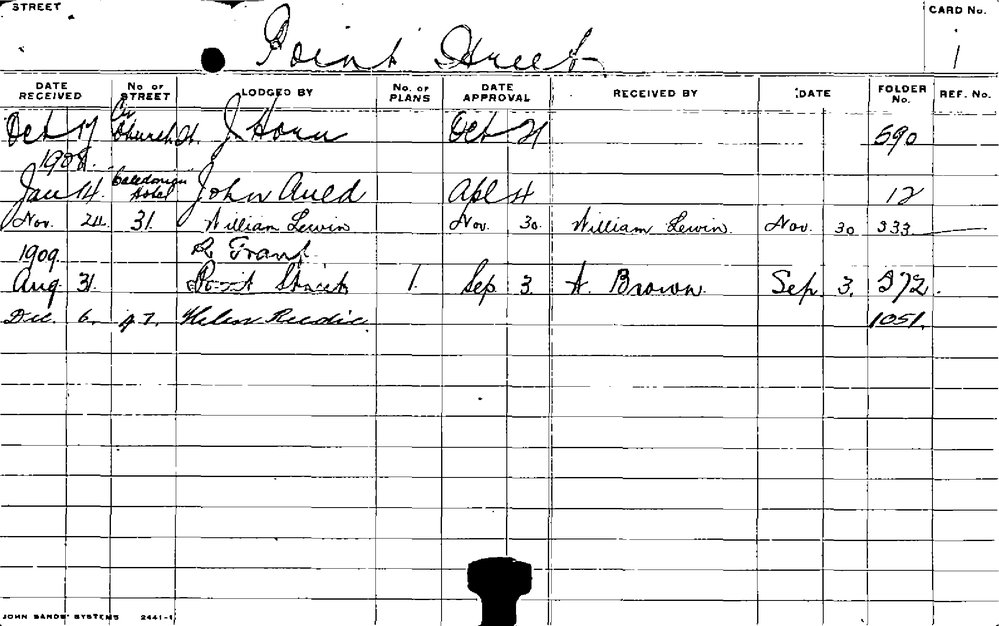 STREET
CARD No.
Point Street
1
DATE RECEIVED No. OF STREET LODGED BY No. OF PLANS DATE APPROVAL RECEIVED BY DATE FOLDER No. REF. No.
Oct 17 Cr Church St. J. Horn Oct 21 590
1908.
Jan 14. "Caledonian" Hotel John Auld Apl 4 12
Nov. 24. 31. William Lewin Nov. 30. William Lewin. Nov. 30 333
1909. R Frank
Aug 31. Street 1. Sep. 3. A. Brown. Sep. 3. 372.
Dec. 6. 47. Helen Reedie. 1051.
JOHN SANDS' SYSTEMS 2441-1